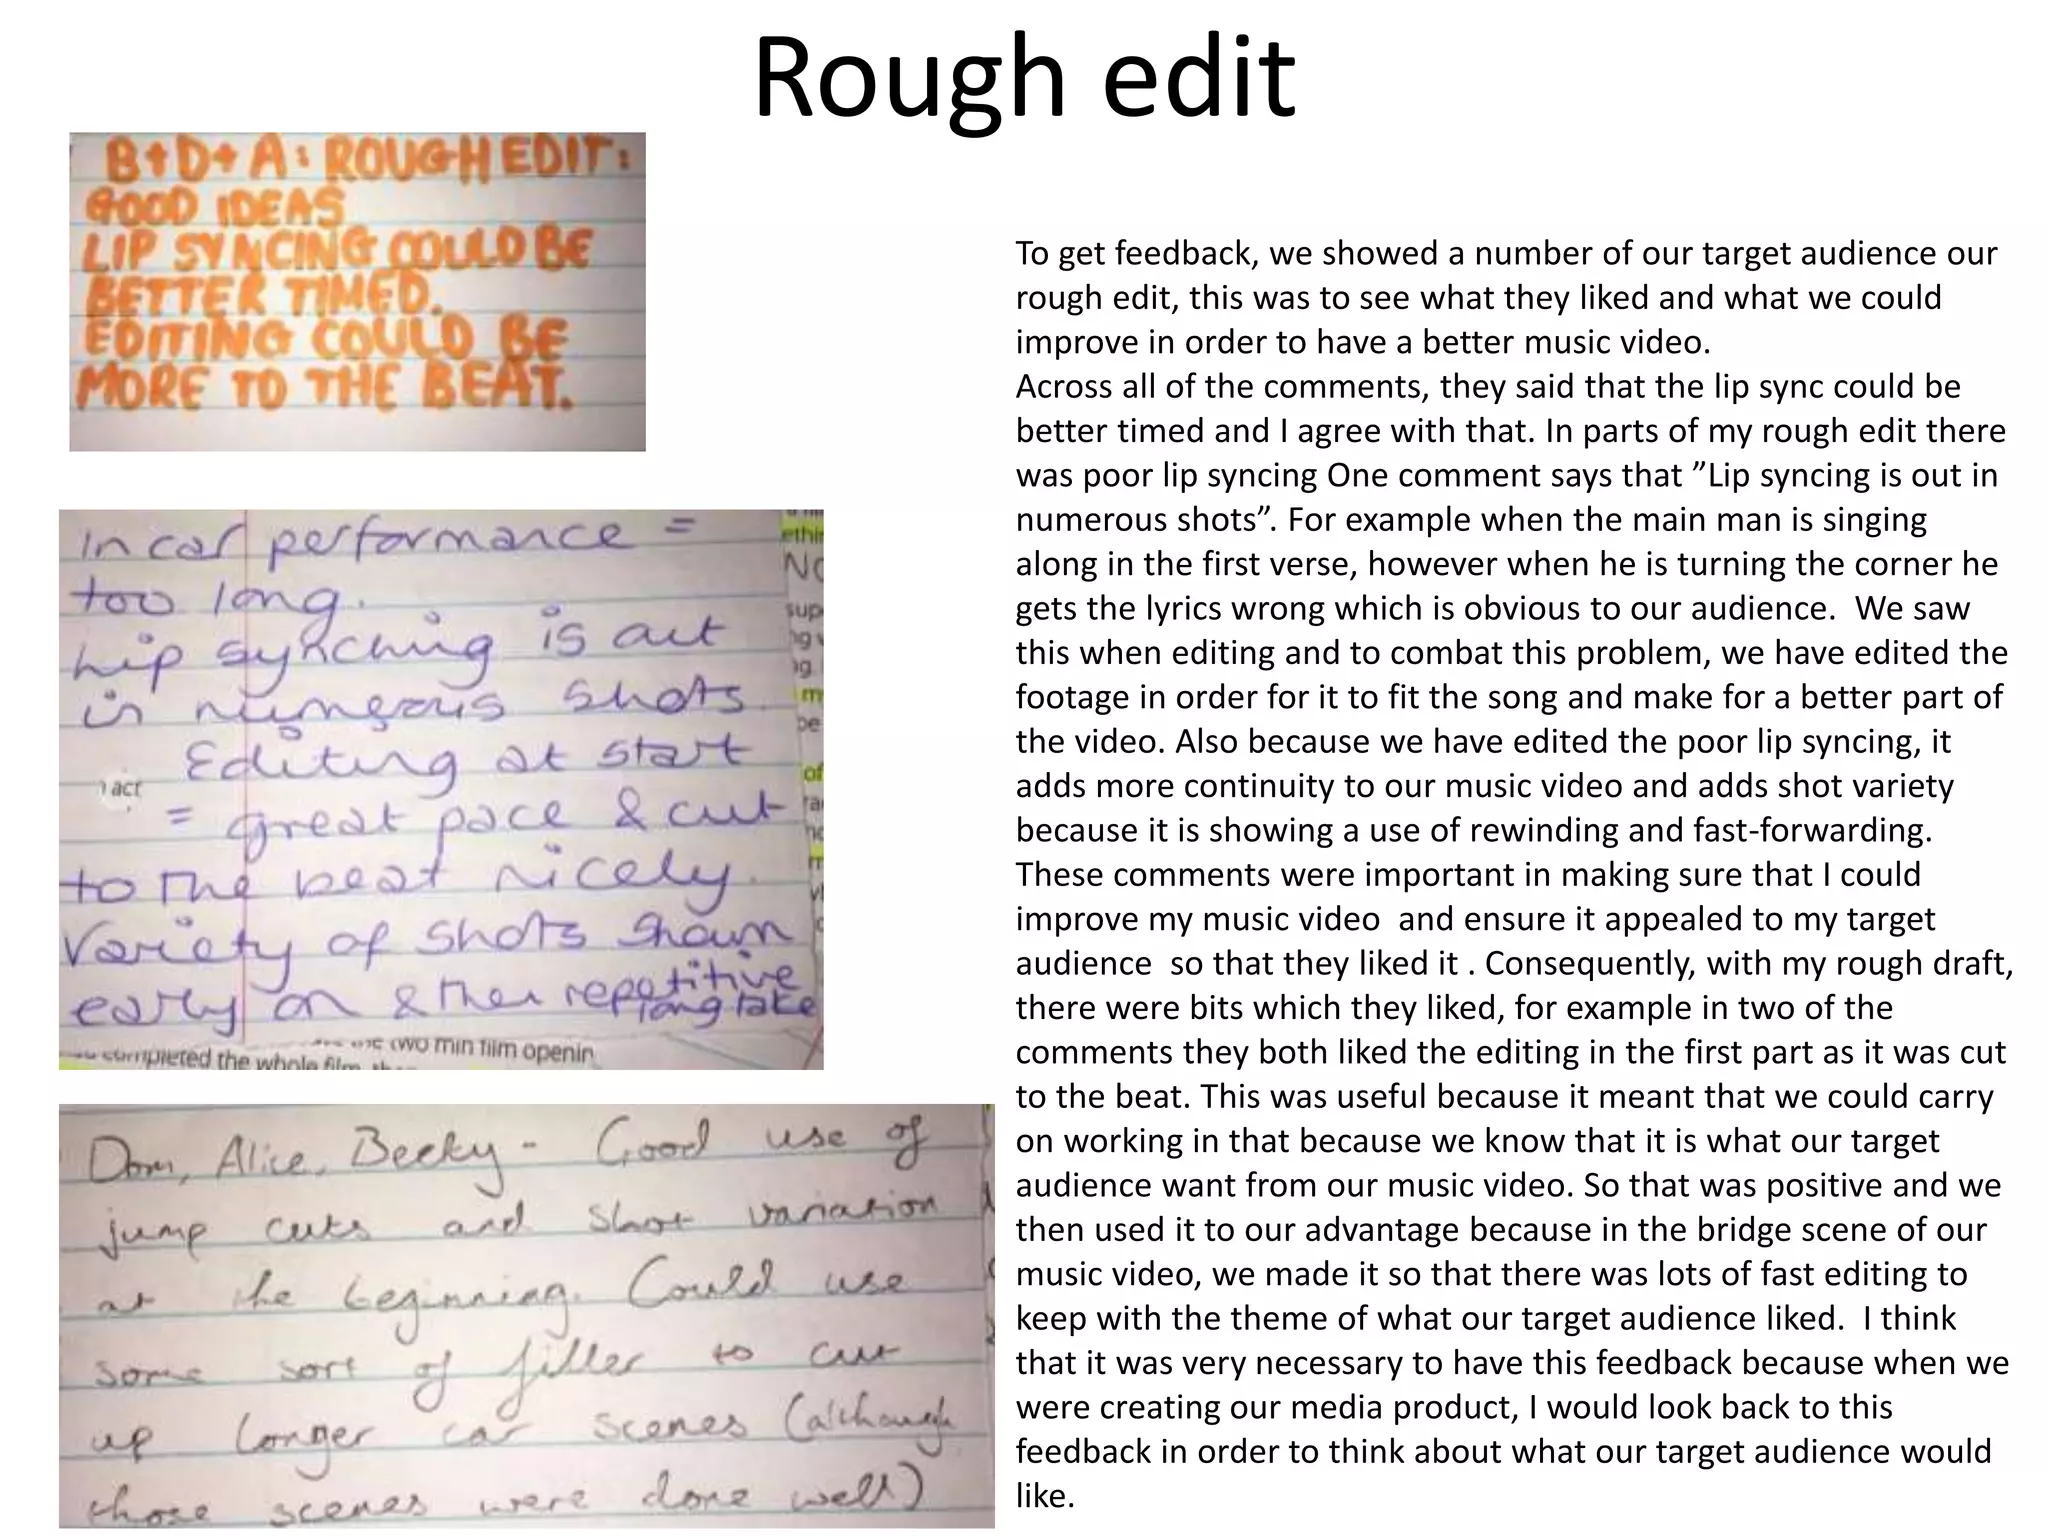 Rough edit
B+D+A: ROUGH EDIT:
GOOD IDEAS
LIP SYNCING COULD BE
BETTER TIMED.
EDITING COULD BE
MORE TO THE BEAT.
In car performance =
too long.
Lip synching is out
in numerous shots.
Editing at start
= great pace & cut
to the beat nicely.
Variety of shots shown
early on & then repetitive
long take
act
completed the whole film
two min film openin
Dom, Alice, Becky - Good use of
jump cuts and shot variation
at the beginning. Could use
some sort of filler to cut
up longer car scenes (although
those scenes were done well)
To get feedback, we showed a number of our target audience our
rough edit, this was to see what they liked and what we could
improve in order to have a better music video.
Across all of the comments, they said that the lip sync could be
better timed and I agree with that. In parts of my rough edit there
was poor lip syncing One comment says that ”Lip syncing is out in
numerous shots”. For example when the main man is singing
along in the first verse, however when he is turning the corner he
gets the lyrics wrong which is obvious to our audience.  We saw
this when editing and to combat this problem, we have edited the
footage in order for it to fit the song and make for a better part of
the video. Also because we have edited the poor lip syncing, it
adds more continuity to our music video and adds shot variety
because it is showing a use of rewinding and fast-forwarding.
These comments were important in making sure that I could
improve my music video  and ensure it appealed to my target
audience  so that they liked it . Consequently, with my rough draft,
there were bits which they liked, for example in two of the
comments they both liked the editing in the first part as it was cut
to the beat. This was useful because it meant that we could carry
on working in that because we know that it is what our target
audience want from our music video. So that was positive and we
then used it to our advantage because in the bridge scene of our
music video, we made it so that there was lots of fast editing to
keep with the theme of what our target audience liked.  I think
that it was very necessary to have this feedback because when we
were creating our media product, I would look back to this
feedback in order to think about what our target audience would
like.